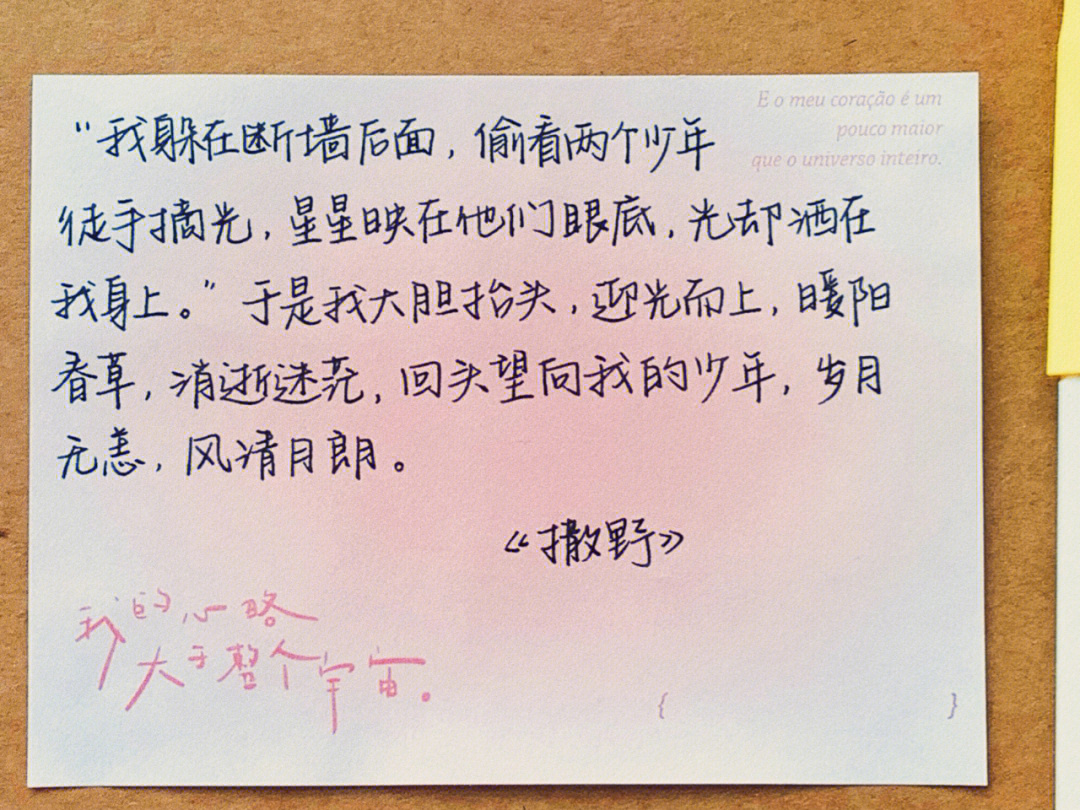 E o meu coração é um
pouco maior
que o universo inteiro.
“我躲在断墙后面，偷看两个少年
徒手摘光，星星映在他们眼底，光却洒在
我身上。”于是我大胆抬头，迎光而上，暖阳
春草，消逝迷茫，回头望向我的少年，岁月
无恙，风清月朗。
《撒野》
我的心略
大于整个宇宙。
{ }